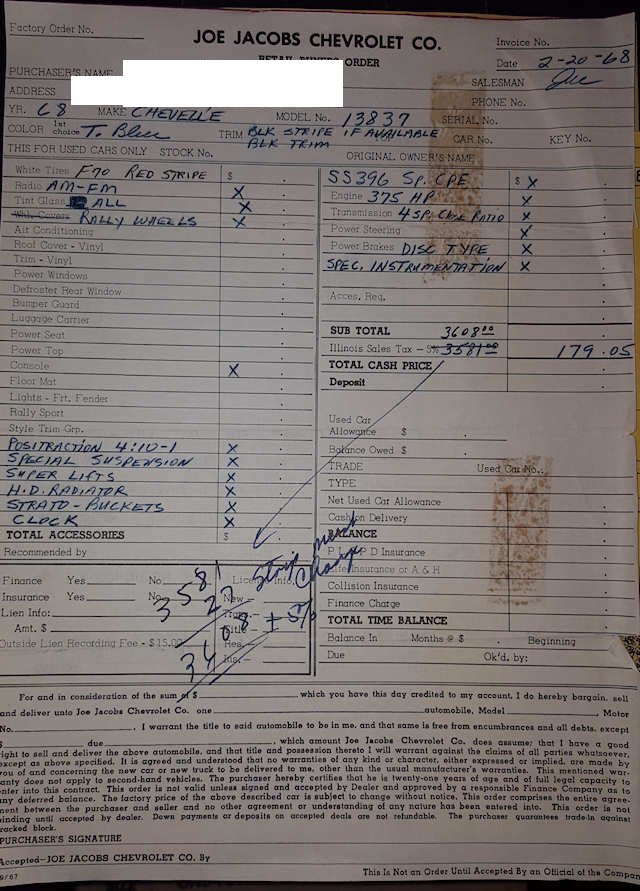 Factory Order No.
JOE JACOBS CHEVROLET CO.
Invoice No.
RETAIL BUYERS ORDER
Date 2-20-68
PURCHASER'S NAME
SALESMAN Joe
ADDRESS
PHONE No.
YR. 68 MAKE CHEVELLE MODEL No. 13837 SERIAL No.
COLOR 1st choice T. Blue TRIM BLK STRIPE IF AVAILABLE CAR No. KEY No.
BLK TRIM
THIS FOR USED CARS ONLY STOCK No. ORIGINAL OWNER'S NAME
White Tires F70 RED STRIPE $
Radio AM-FM X
Tint Glass ALL X
Whl. Covers RALLY WHEELS X
Air Conditioning
Roof Cover - Vinyl
Trim - Vinyl
Power Windows
Defroster Rear Window
Bumper Guard
Luggage Carrier
Power Seat
Power Top
Console X
Floor Mat
Lights - Frt. Fender
Rally Sport
Style Trim Grp.
POSITRACTION 4:10-1 X
SPECIAL SUSPENSION X
SUPER LIFTS X
H.D. RADIATOR X
STRATO-BUCKETS X
CLOCK X
TOTAL ACCESSORIES $
Recommended by
SS396 SP. CPE $ X
Engine 375 HP X
Transmission 4 SP. CLOSE RATIO X
Power Steering X
Power Brakes DISC TYPE X
SPEC. INSTRUMENTATION X
Acces. Req.
SUB TOTAL 3608.00
Illinois Sales Tax - 5% 3581.00 179.05
TOTAL CASH PRICE
Deposit
Used Car
Allowance $
Balance Owed $
TRADE Used Car No.
TYPE
Net Used Car Allowance
Cash on Delivery
BALANCE
P L & P D Insurance
Life Insurance or A & H
Collision Insurance
Finance Charge
TOTAL TIME BALANCE
Balance In Months @ $ Beginning
Due Ok'd. by:
Finance Yes No License Info.
Insurance Yes No New
Lien Info: Trans.
Amt. $ Title
Outside Lien Recording Fee - $15.00 Res.
Ins.
3581
27
3608 + 5%
Stripe
Change
For and in consideration of the sum of $ which you have this day credited to my account, I do hereby bargain, sell
and deliver unto Joe Jacobs Chevrolet Co. one automobile, Model , Motor
No. , I warrant the title to said automobile to be in me, and that same is free from encumbrances and all debts, except
$ due , which amount Joe Jacobs Chevrolet Co. does assume; that I have a good
right to sell and deliver the above automobile, and that title and possession thereto I will warrant against the claims of all parties whatsoever,
except as above specified. It is agreed and understood that no warranties of any kind or character, either expressed or implied, are made by
you of and concerning the new car or new truck to be delivered to me, other than the usual manufacturer's warranties. This mentioned war-
ranty does not apply to second-hand vehicles. The purchaser hereby certifies that he is twenty-one years of age and of full legal capacity to
enter into this contract. This order is not valid unless signed and accepted by Dealer and approved by a responsible Finance Company as to
any deferred balance. The factory price of the above described car is subject to change without notice. This order comprises the entire agree-
ment between the purchaser and seller and no other agreement or understanding of any nature has been entered into. This order is not
binding until accepted by dealer. Down payments or deposits on accepted deals are not refundable. The purchaser guarantees trade-in against
cracked block.
PURCHASER'S SIGNATURE
Accepted-JOE JACOBS CHEVROLET CO. By
9/67
This Is Not an Order Until Accepted By an Official of the Compan